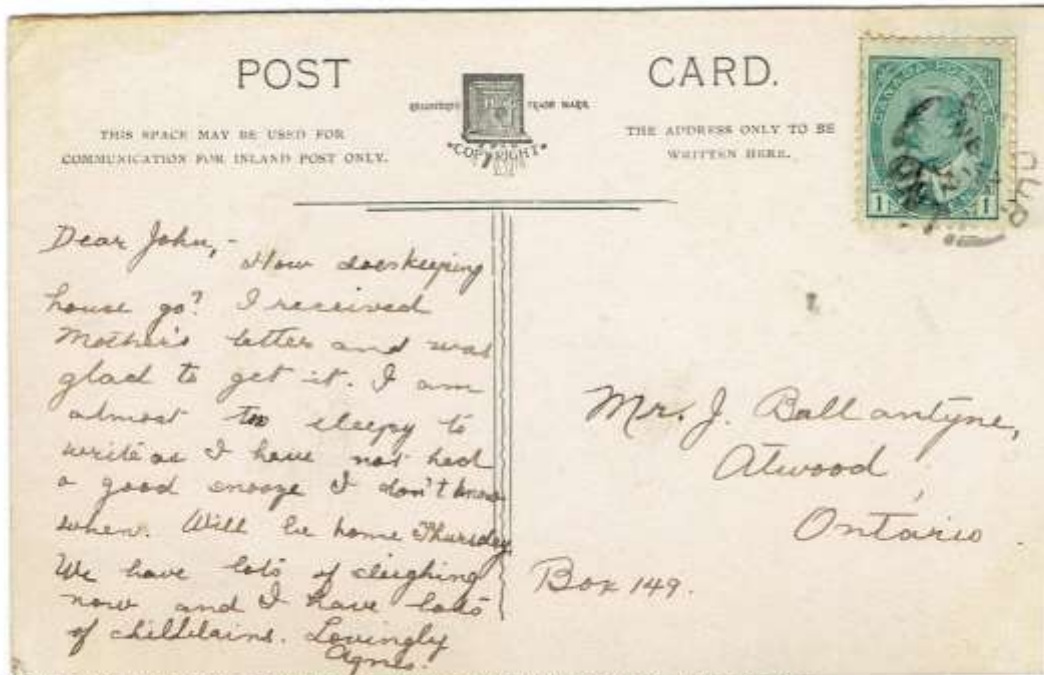 POST CARD.
REGISTERED TRADE MARK
COPYRIGHT
THIS SPACE MAY BE USED FOR
COMMUNICATION FOR INLAND POST ONLY.
THE ADDRESS ONLY TO BE
WRITTEN HERE.
1 1
OUR
Dear John,-
How does keeping
house go? I received
Mother's letter and was
glad to get it. I am
almost too sleepy to
write as I have not had
a good snooze I don't know
when. Will be home Thursday
We have lots of sleighing
now and I have lots
of chilblains. Lovingly
Agnes.
Mr. J. Ballantyne,
Atwood,
Ontario.
Box 149.